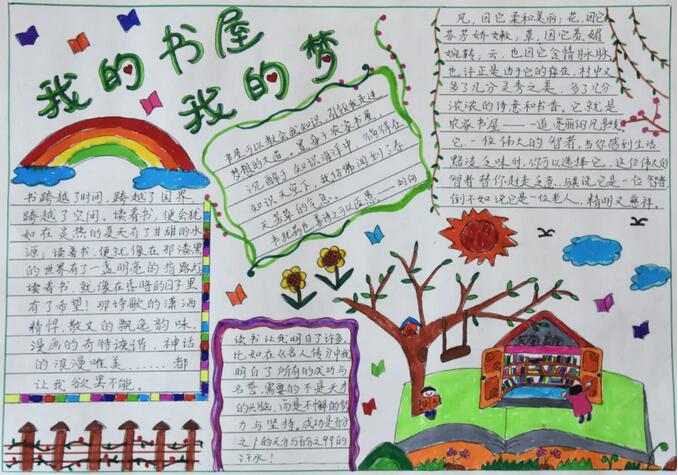 我的书屋
我的梦
书跨越了时间,跨越了国界,
跨越了空间。读着书,便会犹
如在炎热的夏天有了甘甜的水
源;读着书,便就像在那漆黑
的世界有了一盏明亮的指路灯
读着书,就像在昏暗的日子里
有了希望!那诗歌的潇洒
精悍,散文的飘逸韵味,
漫画的奇特诙谐,神话
的浪漫唯美......都
让我欲罢不能。
书屋可以教会我知识,引领我走进
梦想的大道。置身于农家书屋,
沉醉于知识海洋中,徜徉在
知识天空下,我仿佛闻到了春
天芳草的气息。
书犹药也,善读之可以医愚。——刘向
风,因它柔和美丽;花,因它
芬芳娇嫩;草,因它柔媚
婉转;云,也因它含情脉脉
也许正是由于它的存在,村中又
多了几分灵秀之美,多了几分
浓浓的诗意和书香。它就是
农家书屋——一道亮丽的风景线。
它一位伟大的智者,当你感到生活
黯淡乏味时,你可以选择它,这位伟大的
智者替你赶走乏意。与其说它是一位智者
倒不如说它是一位老人,精明又慈祥。
读书让我明白了许多,
比如在《名人传》中我
明白了所有的成功与
名誉,需要的不是天才
的头脑,而是不懈的努
力与坚持,成功是百分
之1的天分与百分之99的
汗水!